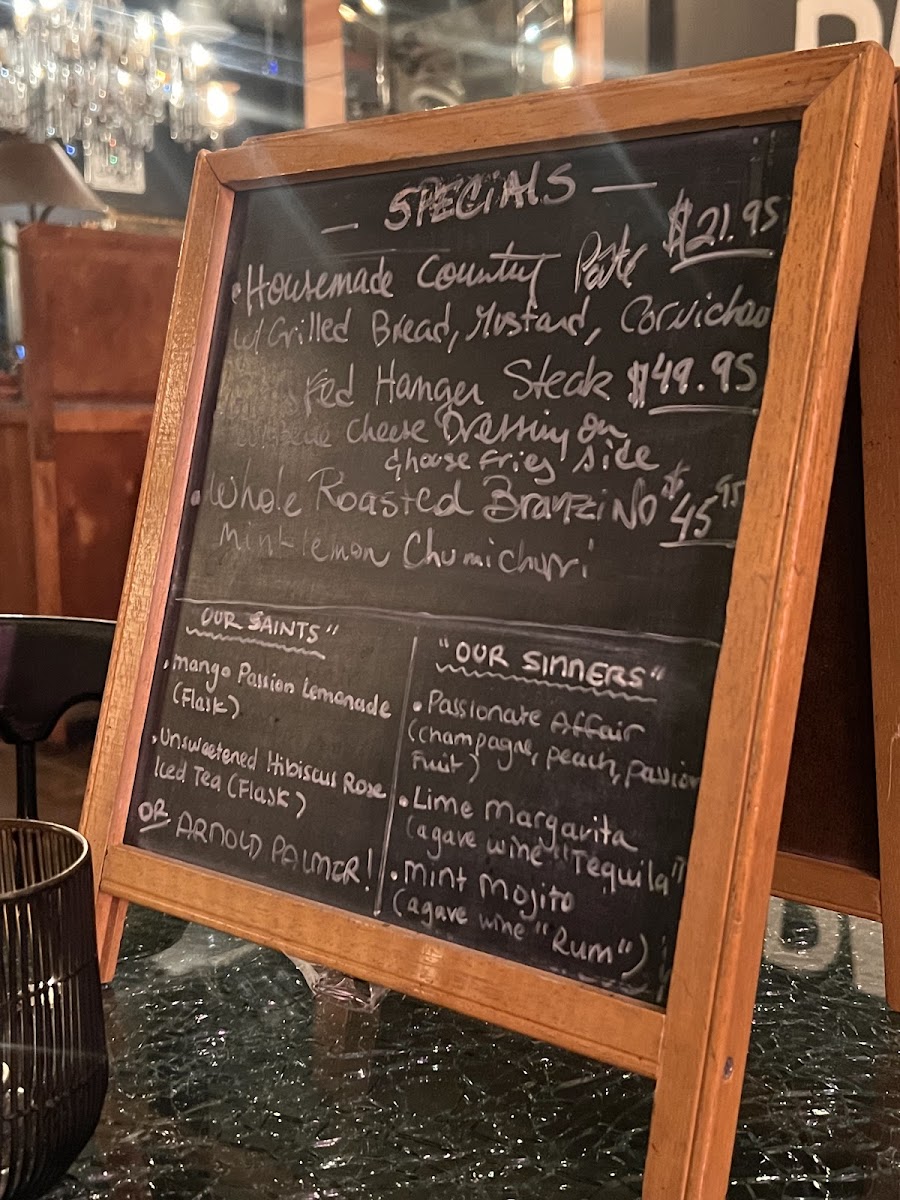 — SPECIALS —
• Housemade Country Pate $21.95
w/ Grilled Bread, Mustard, Cornichon
Hanger Steak $49.95
Cheese Dressing On
& house fries side
• Whole Roasted Branzino $45.95
Mint lemon Chumichurri
OUR SAINTS"
• Mango Passion Lemonade
(Flask)
• Unsweetened Hibiscus Rose
Iced Tea (Flask)
OR ARNOLD PALMER!
"OUR SINNERS"
• Passionate Affair
(champagne, peach, passion
Fruit)
• Lime Margarita
(agave wine "Tequila")
• Mint Mojito
(agave wine "Rum")